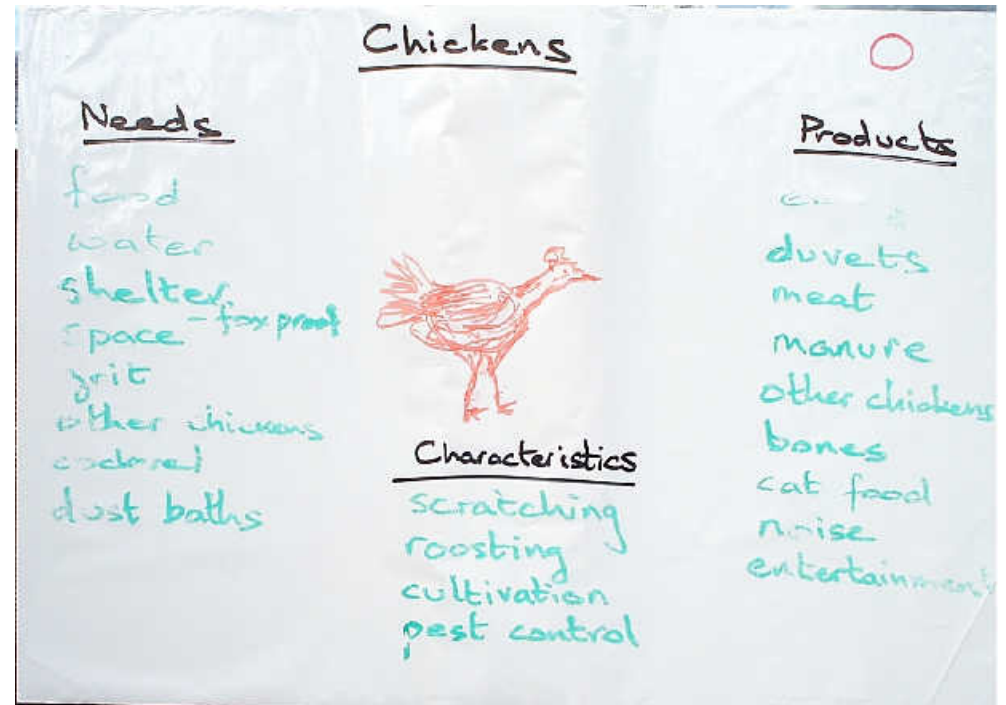 Chickens
Needs
food
water
shelter
- fox proof
space
grit
other chickens
dust baths
Characteristics
scratching
roosting
cultivation
pest control
Products
duvets
meat
manure
other chickens
bones
cat food
noise
entertainment